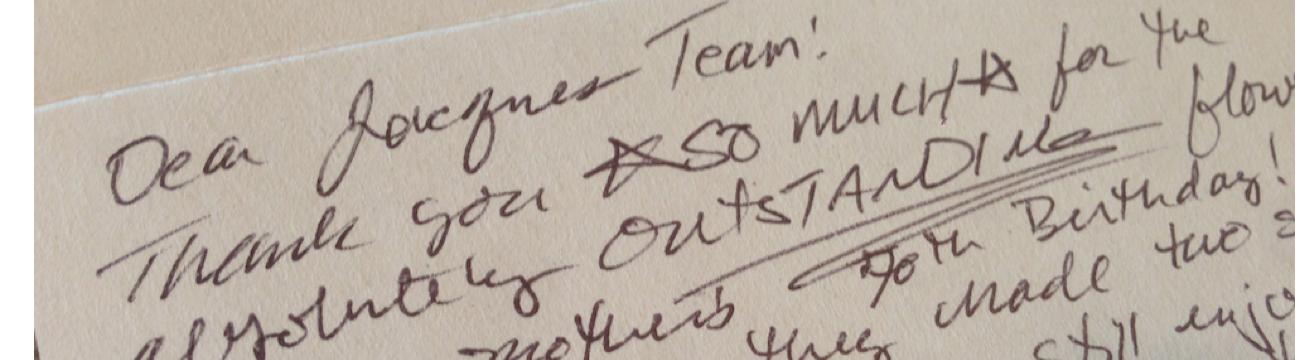 Dear Jacques Team!
Thank you ☆SO MUCH☆ for the
absolutely OUTSTANDING flow
mother's 90th Birthday!
they made two
still enjo